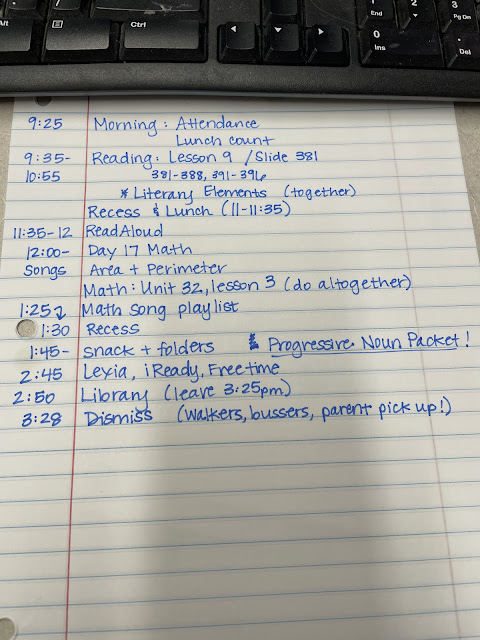 End
2
3
Pg Dn
Alt
Ctrl
0
Ins
.
Del
9:25 Morning: Attendance
Lunch count
9:35- Reading: Lesson 9 / Slide 381
10:55 381-388, 391-396
* Literary Elements (together)
Recess & Lunch (11-11:35)
11:35-12 Read Aloud
12:00- Day 17 Math
Songs Area + Perimeter
Math: Unit 32, lesson 3 (do altogether)
1:25 Math song playlist
1:30 Recess
1:45- snack + folders & Progressive Noun Packet!
2:45 Lexia, iReady, Freetime
2:50 Library (leave 3:25pm)
3:28 Dismiss (walkers, bussers, parent pick up!)